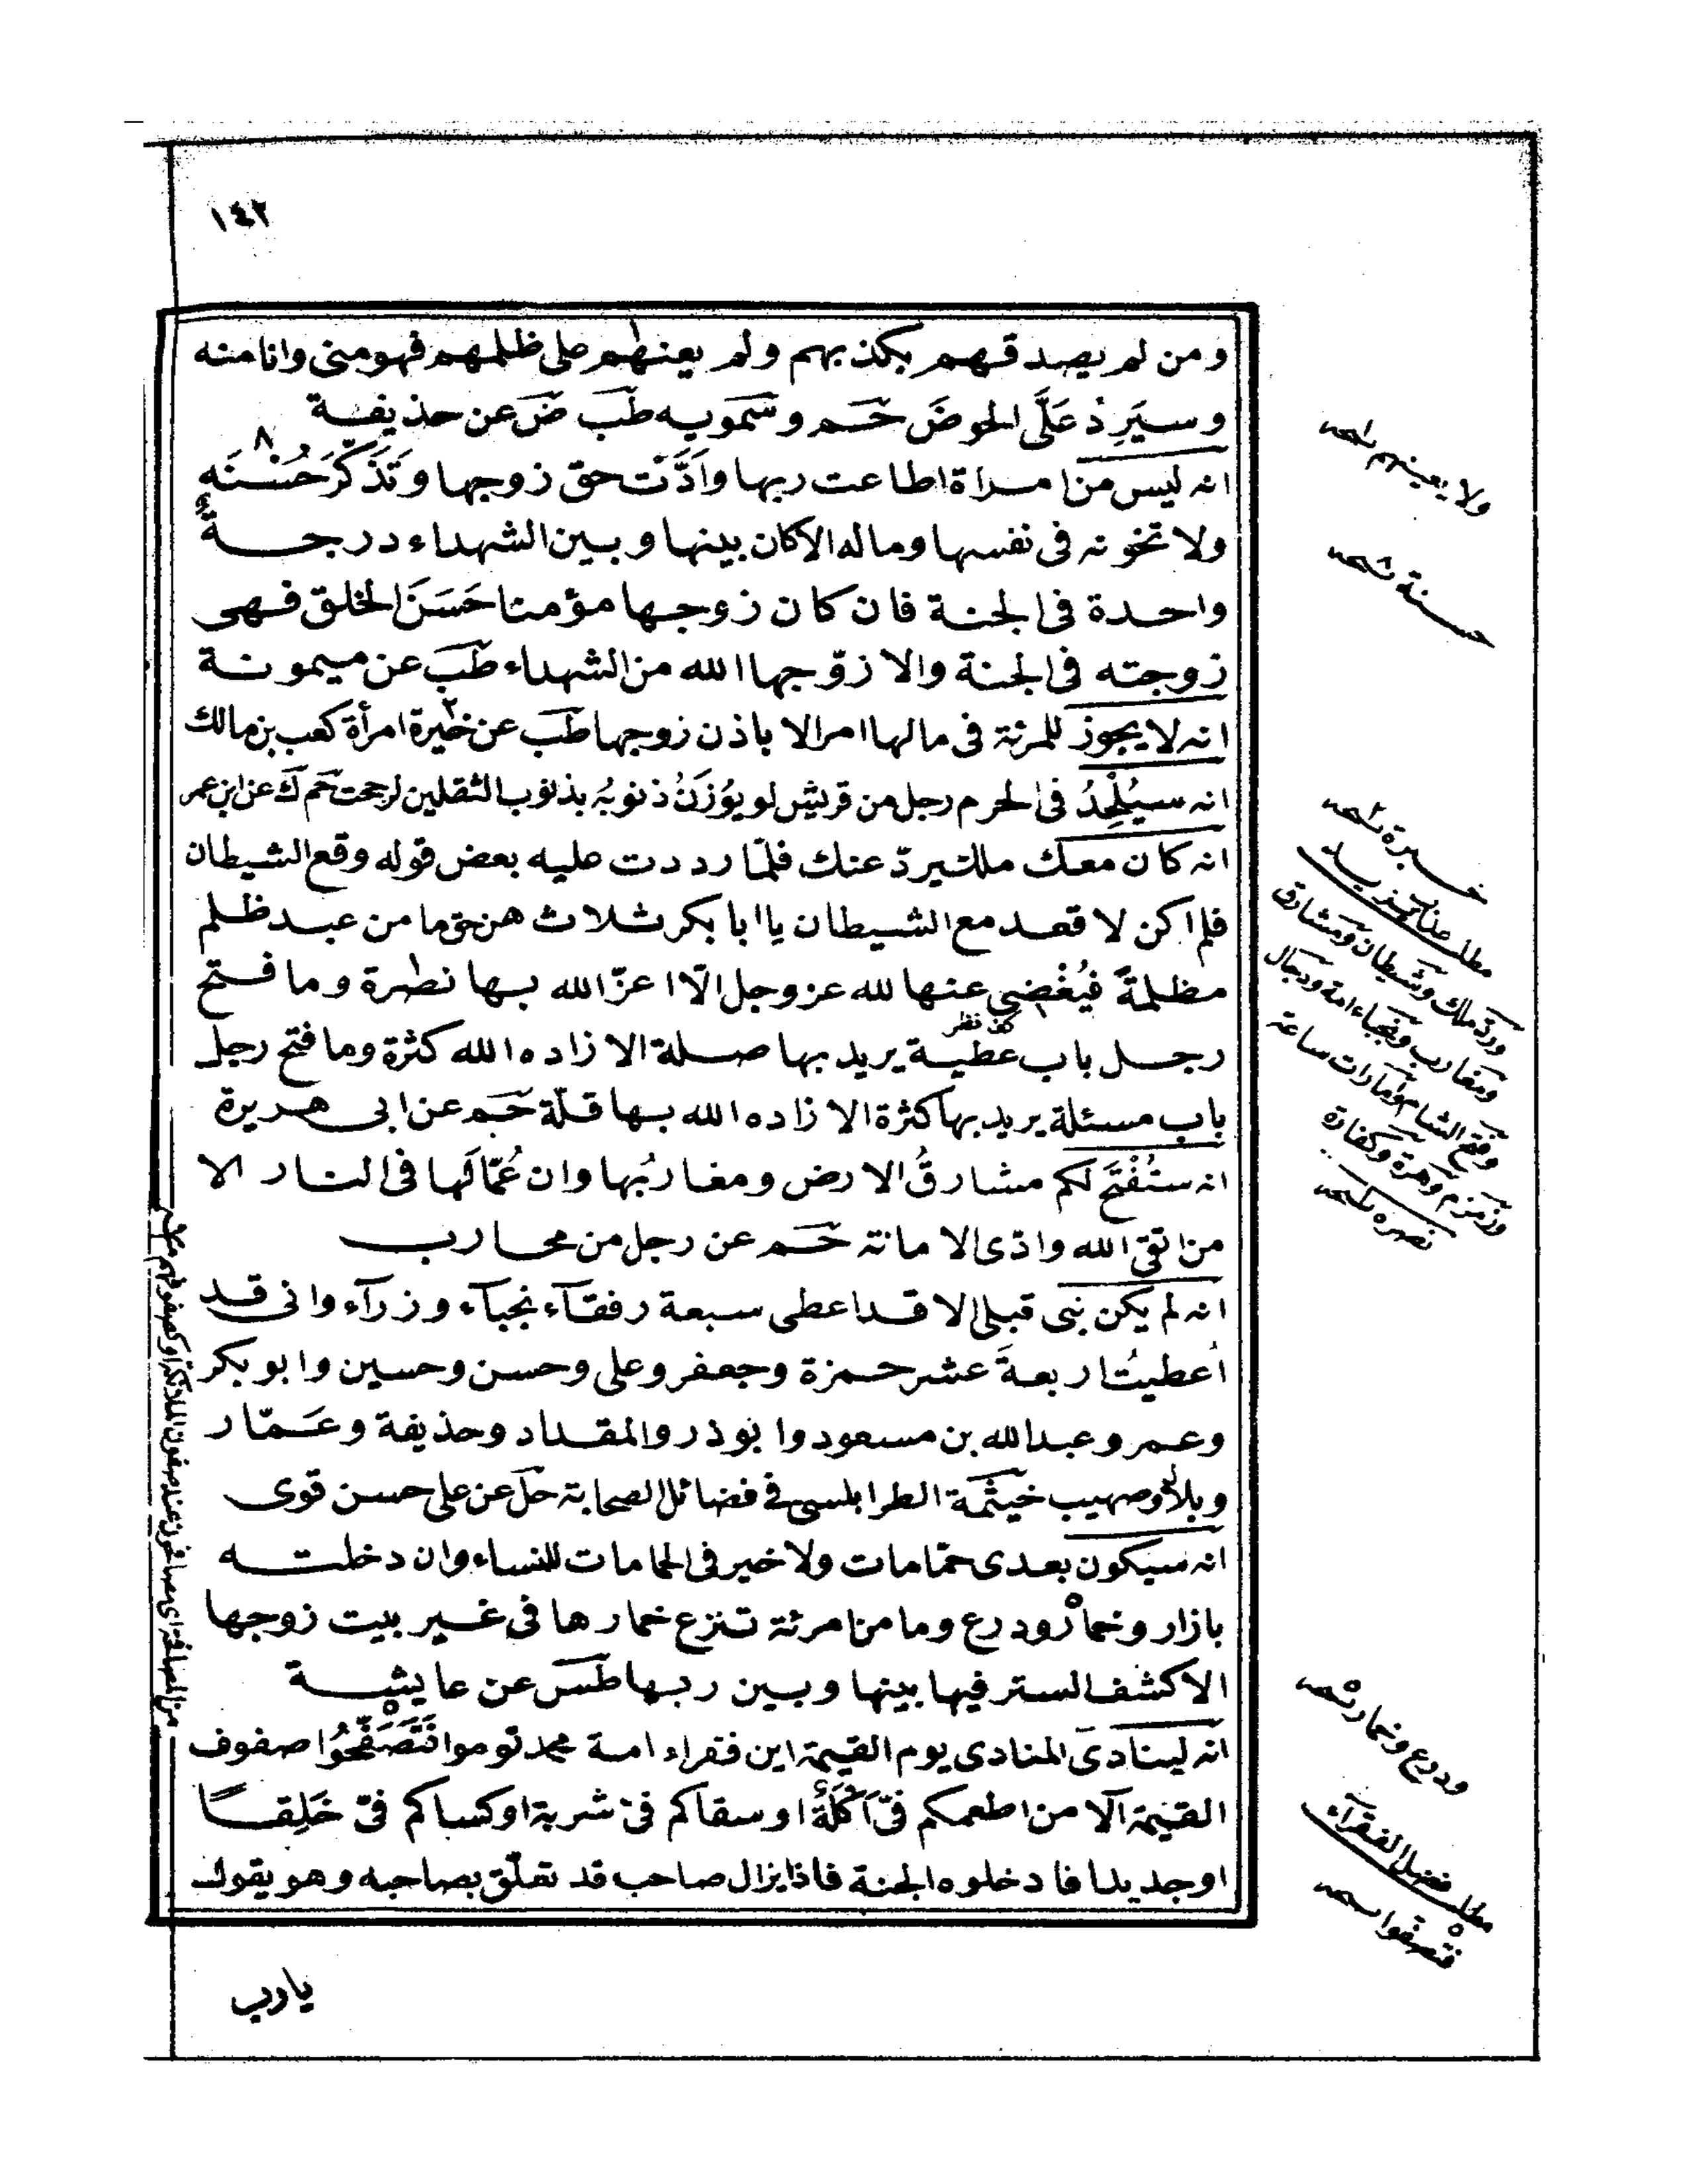 ١٤٢
ومن لم يصدقهم بكذبهم ولم يعنهم على ظلمهم فهو منى وانا منه
وسيَرِدُ عَلَىَّ الحوضَ حَم وسَمويه طَب ضَ عن حذيفة
انه ليس من امراة اطاعت ربها وادَّت حق زوجها وتَذكّرَ حُسْنَه
ولا تخونه فى نفسها وماله الا كان بينها وبين الشهداء درجةٌ
واحدة فى الجنة فان كان زوجها مؤمنا حَسَنَ الخلق فهى
زوجته فى الجنة والا زوّجها الله من الشهداء طَب عن ميمونة
انه لا يجوز للمرئة فى مالها امر الا باذن زوجها طَب عن خيرة امرأة كعب بن مالك
انه سيُلْحِدُ فى الحرم رجل من قريش لو يُوزَنُ ذنوبُه بذنوب الثقلين لرجحت حَم كَ عن ابن عمر
انه كان معك ملك يردّ عنك فلمّا رددت عليه بعض قوله وقع الشيطان
فلم اكن لاقعد مع الشيطان يا ابا بكر ثلاث هن حق ما من عبد ظلم
مظلمةً فيُغْضِى عنها لله عز وجل الّا اعزّ الله بها نصره وما فتح
رجل باب عطية يريد بها صلة الا زاده الله كثرة وما فتح رجل
باب مسئلة يريد بها كثرة الا زاده الله بها قلّة حَم عن ابى هريرة
انه ستُفْتَح لكم مشارقُ الارض ومغاربُها وان عُمّالَها فى النار الا
من اتقى الله وادّى الامانة حَم عن رجل من محارب
انه لم يكن نبى قبلى الا قد اعطى سبعة رفقآء نجبآء وزرآء وانى قد
اُعطيتُ اربعةَ عشر حمزة وجعفر وعلى وحسن وحسين وابو بكر
وعمر وعبد الله بن مسعود وابو ذر والمقداد وحذيفة وعَمّار
وبلال وصهيب خيثمة الطرابلسى فى فضائل الصحابة حَل عن على حسن قوى
انه سيكون بعدى حمّامات ولا خير فى الحمامات للنساء وان دخلته
بازار وخمار ودرع وما من امرئة تنزع خمارها فى غير بيت زوجها
الا كشف الستر فيها بينها وبين ربها طَس عن عايشة
انه لينادى المنادى يوم القيمة اين فقراء امة محمد قوموا فَتَصَفَّحُوا صفوف
القيمة اَلا من اطعمكم فىّ اَكْلَةً او سقاكم فىّ شربة او كساكم فىّ خَلِقًا
او جديدا فادخلوه الجنة فلا يزال صاحب قد تعلّق بصاحبه وهو يقول
يارب
ولا يعينهم نسخه
حسنة نسخه
خيرة نسخه
وردّ ملك وشيطان ومشارق
ومغارب ونجباء امة ودجال
وفتح الشام وامارات ساعة
وزمزم وهرة وكفارة
نصره نسخه
ودرع وخمار نسخه
مطلب فضل الفقرآء